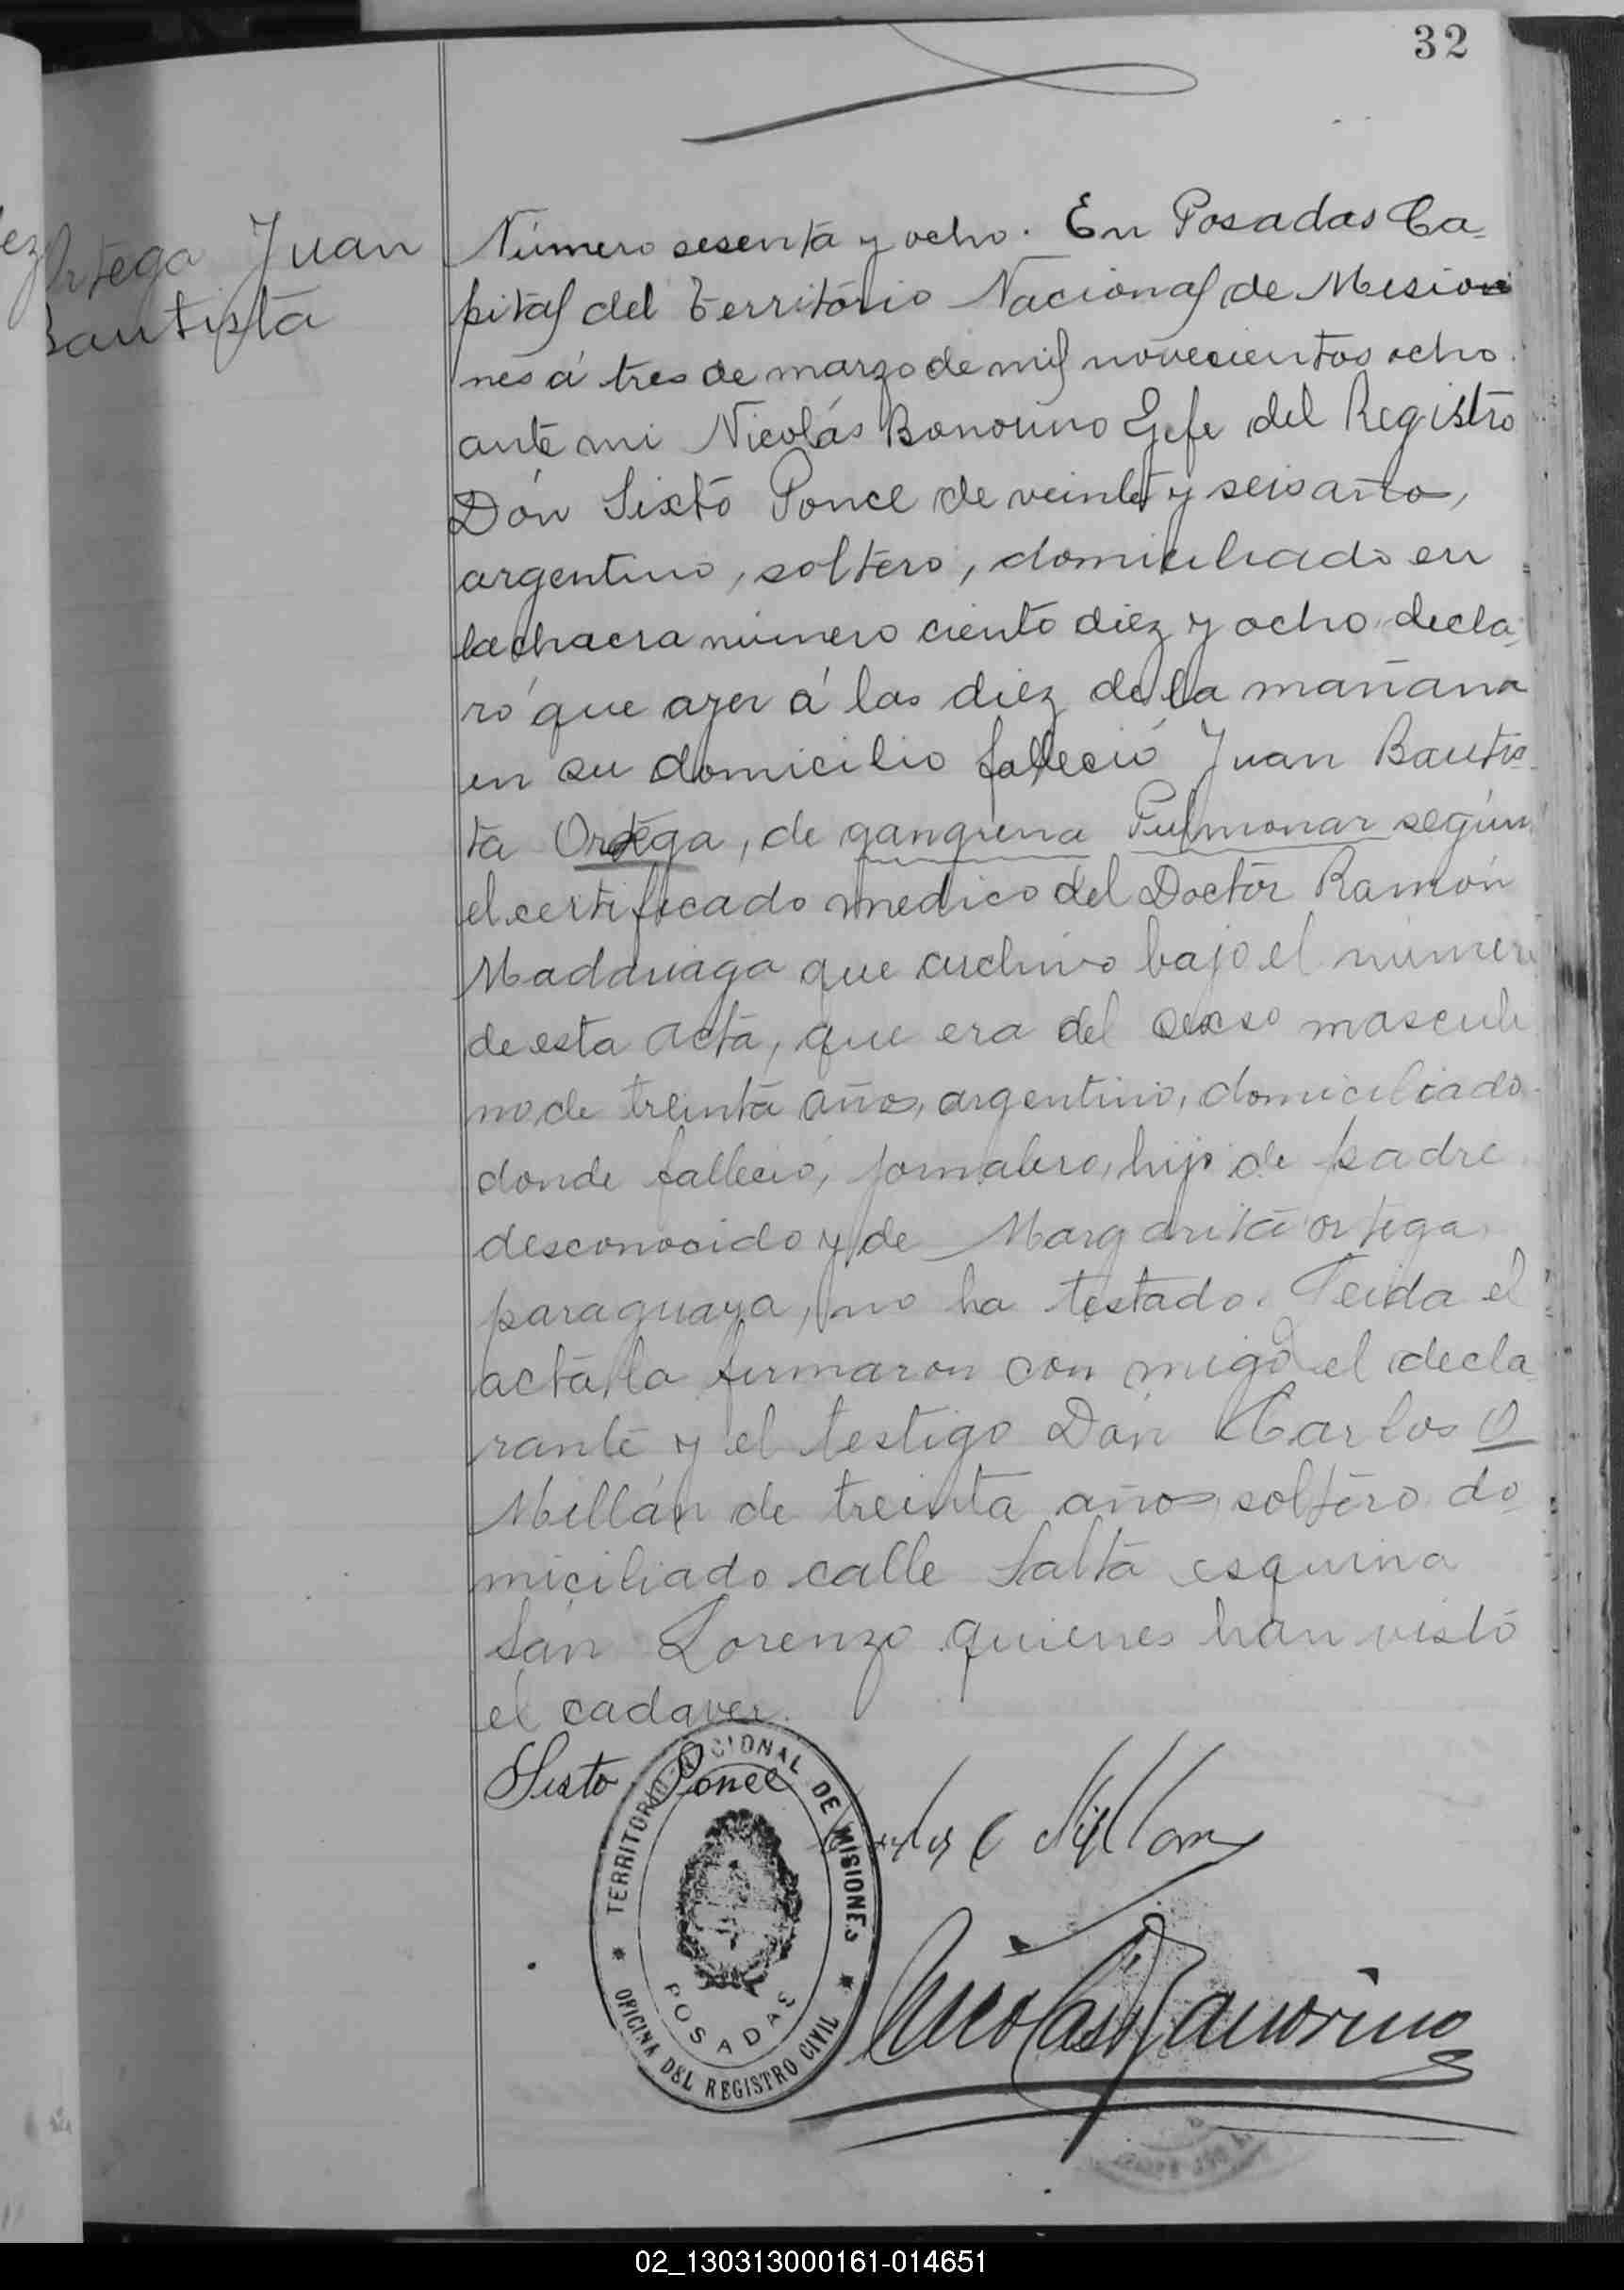 32
Ortega Juan
Bautista
Número sesenta y ocho. En Posadas Ca-
pital del Território Nacional de Misio
nes á tres de marzo de mil novecientos ocho.
ante mi Nicolás Bonorino Gefe del Registro
Dón Sixto Ponce de veinte y seis años,
argentino, soltero, domiciliado en
la chacra número ciento diez y ocho decla-
ró que ayer á las diez de la mañana
en su domicilio falleció Juan Bautis-
ta Ortega, de gangrena Pulmonar según
el certificado medico del Doctor Ramón
Madariaga que archivo bajo el número
de esta acta, que era del sexso masculi
no, de treinta años, argentino, domiciliado
donde falleció, jornalero, hijo de padre
desconocido y de Margarita Ortega
paraguaya, no ha testado. Leida el
acta, la firmaron con migo el decla
rante y el testigo Dón Carlos
Millán de treinta años, soltero do
miciliado calle Salta esquina
San Lorenzo quienes han visto
el cadaver.
Sisto Ponce
Carlos C Millan
Nicolás Bonorino
TERRITORIO NACIONAL DE MISIONES
POSADAS
OFICINA DEL REGISTRO CIVIL
02_130313000161-014651